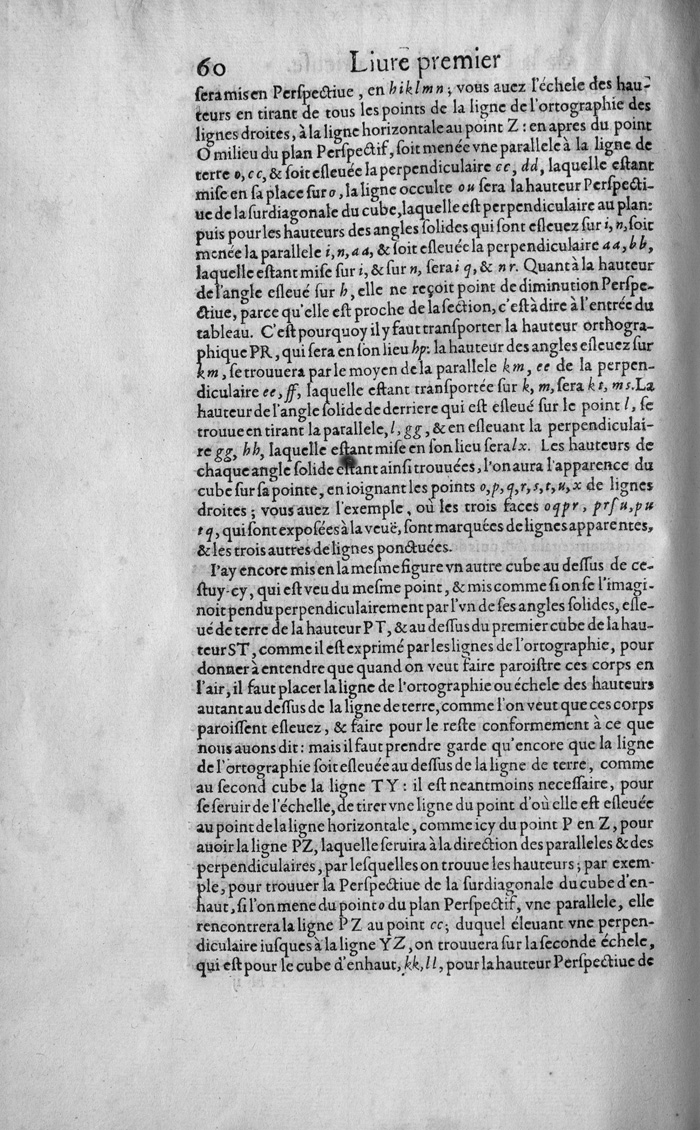 60 Liure premier
ſera mis en Perſpectiue, en hiklmn; vous auez l'échele des hau-
teurs en tirant de tous les points de la ligne de l'ortographie des
lignes droites, à la ligne horizontale au point Z: en apres du point
O milieu du plan Perſpectif, ſoit menée vne parallele à la ligne de
terre o, cc, & ſoit eſleuée la perpendiculaire cc, dd, laquelle eſtant
miſe en ſa place ſur o, la ligne occulte ou ſera la hauteur Perſpecti-
ue de la ſurdiagonale du cube, laquelle eſt perpendiculaire au plan:
puis pour les hauteurs des angles ſolides qui ſont eſleuez ſur i, n, ſoit
menée la parallele i, n, aa, & ſoit eſleuée la perpendiculaire aa, bb,
laquelle eſtant miſe ſur i, & ſur n, ſera i q, & nr. Quant à la hauteur
de l'angle eſleué ſur h, elle ne reçoit point de diminution Perſpe-
ctiue, parce qu'elle eſt proche de la ſection, c'eſt à dire à l'entrée du
tableau. C'eſt pourquoy il y faut tranſporter la hauteur orthogra-
phique PR, qui ſera en ſon lieu hp: la hauteur des angles eſleuez ſur
km, ſe trouuera par le moyen de la parallele km, ee de la perpen-
diculaire ee, ff, laquelle eſtant tranſportée ſur k, m, ſera kt, ms. La
hauteur de l'angle ſolide de derriere qui eſt eſleué ſur le point l, ſe
trouue en tirant la parallele, l, gg, & en eſleuant la perpendiculai-
re gg, hh, laquelle eſtant miſe en ſon lieu ſera lx. Les hauteurs de
chaque angle ſolide eſtant ainſi trouuées, l'on aura l'apparence du
cube ſur ſa pointe, en ioignant les points o, p, q, r, s, t, u, x de lignes
droites; vous auez l'exemple, où les trois faces oqpr, prſu, pu
tq, qui ſont expoſées à la veuë, ſont marquées de lignes apparentes,
& les trois autres de lignes ponctuées.
I'ay encore mis en la meſme figure vn autre cube au deſſus de ce-
ſtuy-cy, qui eſt veu du meſme point, & mis comme ſi on ſe l'imagi-
noit pendu perpendiculairement par l'vn de ſes angles ſolides, eſle-
ué de terre de la hauteur PT, & au deſſus du premier cube de la hau-
teur ST, comme il eſt exprimé par les lignes de l'ortographie, pour
donner à entendre que quand on veut faire paroiſtre ces corps en
l'air, il faut placer la ligne de l'ortographie ou échele des hauteurs
autant au deſſus de la ligne de terre, comme l'on veut que ces corps
paroiſſent eſleuez, & faire pour le reſte conformement à ce que
nous auons dit: mais il faut prendre garde qu'encore que la ligne
de l'ortographie ſoit eſleuée au deſſus de la ligne de terre, comme
au ſecond cube la ligne TY: il eſt neantmoins neceſſaire, pour
ſe ſeruir de l'échelle, de tirer vne ligne du point d'où elle eſt eſleuée
au point de la ligne horizontale, comme icy du point P en Z, pour
auoir la ligne PZ, laquelle ſeruira à la direction des paralleles & des
perpendiculaires, par leſquelles on trouue les hauteurs; par exem-
ple, pour trouuer la Perſpectiue de la ſurdiagonale du cube d'en-
haut, ſi l'on mene du point o du plan Perſpectif, vne parallele, elle
rencontrera la ligne PZ au point cc; duquel éleuant vne perpen-
diculaire iuſques à la ligne YZ, on trouuera ſur la ſeconde échele,
qui eſt pour le cube d'enhaut, kk, ll, pour la hauteur Perſpectiue de